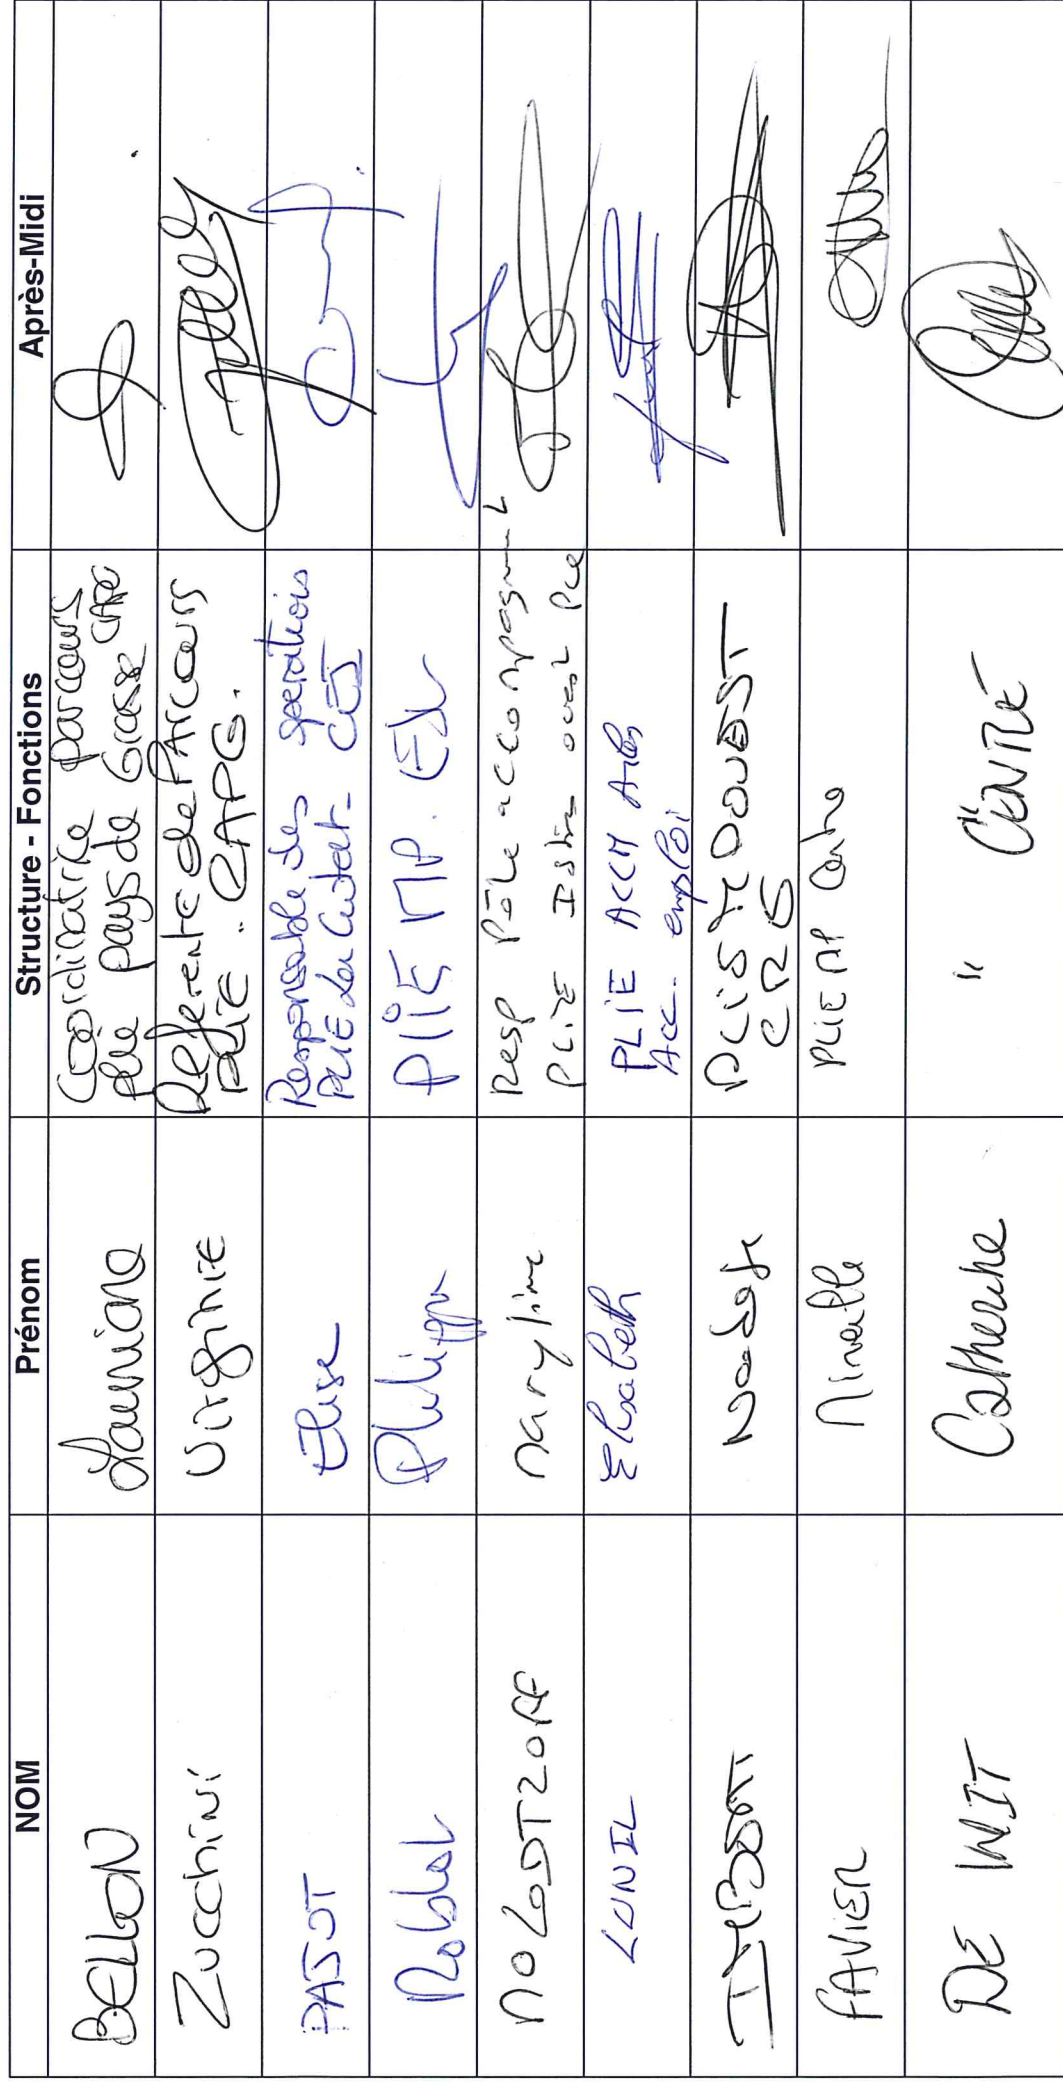 NOM Prénom Structure - Fonctions Après-Midi
BELLON Lauriane Coordinatrice parcours
plie pays de Grasse CAPG
Zucchini Virginie Référente de PArcours
PLIE. CAPG.
PAJOT Elise Responsable des opérations
PLIE La Ciotat- CEJ
Philippe PLIE MP. Est
MOLODTZOFF Maryline Resp Pôle accompagnt
PLIE Istres ouest Pce
LUNIL Elisabeth PLIE ACCM Arles
Acc. emploi
PLIE OUEST
FAVIER Mireille PLIE MP Centre
DE WIT Catherine " " CENTRE